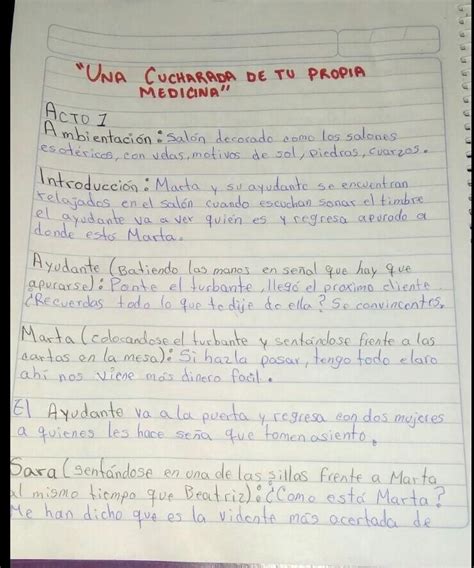 "UNA CUCHARADA DE TU PROPIA
MEDICINA"
ACTO I
Ambientación: Salón decorado como los salones
esotéricos, con velas, motivos de sol, piedras, cuarzos.
Introducción: Marta y su ayudante se encuentran
relajados en el salón cuando escuchan sonar el timbre
el ayudante va a ver quien es y regresa apurado a
donde está Marta.
Ayudante (Batiendo las manos en señal que hay que
apurarse): Ponte el turbante, llegó el proximo cliente
¿Recuerdas todo lo que te dije de ella? Se convincentes.
Marta (colocandose el turbante y sentándose frente a las
cartas en la mesa): Si hazla pasar, tengo todo claro
ahi nos viene más dinero facil.
El Ayudante va a la puerta y regresa con dos mujeres
a quienes les hace seña que tomen asiento.
Sara (sentándose en una de las sillas frente a Marta
al mismo tiempo que Beatriz): ¿Como está Marta?
Me han dicho que es la vidente más acertada de